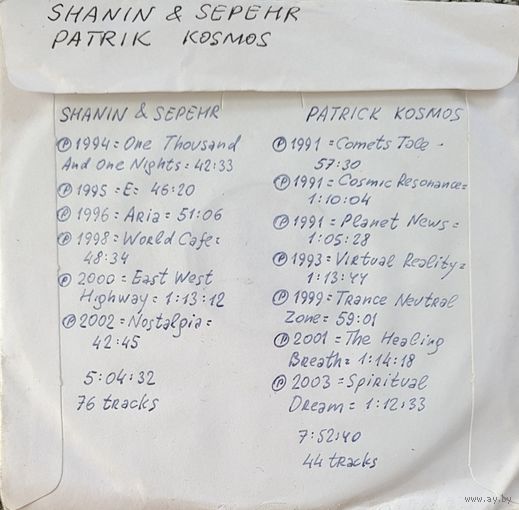 SHANIN & SEPEHR
PATRIK KOSMOS
SHANIN & SEPEHR
Ⓟ 1994 = One Thousand
And One Nights = 42:33
Ⓟ 1995 = E = 46:20
Ⓟ 1996 = Aria = 51:06
Ⓟ 1998 = World Cafe =
48:34
Ⓟ 2000 = East West
Highway = 1:13:12
Ⓟ 2002 = Nostalgia =
42:45
5:04:32
76 tracks
PATRICK KOSMOS
Ⓟ 1991 = Comets Tale -
57:30
Ⓟ 1991 = Cosmic Resonance =
1:10:04
Ⓟ 1991 = Planet News =
1:05:28
Ⓟ 1993 = Virtual Reality =
1:13:44
Ⓟ 1999 = Trance Neutral
Zone = 59:01
Ⓟ 2001 = The Healing
Breath = 1:14:18
Ⓟ 2003 = Spiritual
Dream = 1:12:33
7:52:40
44 tracks
www.ay.by